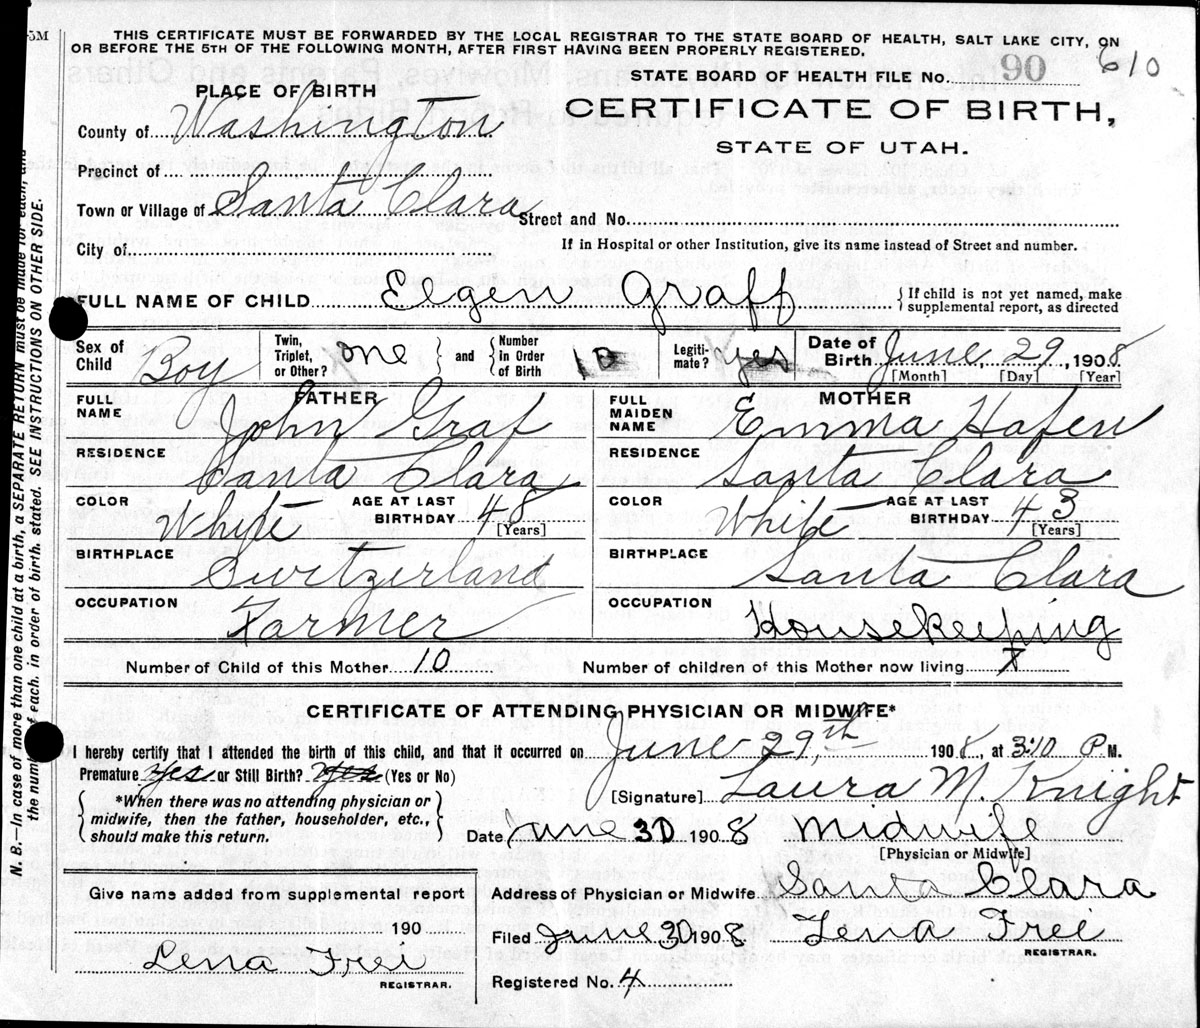 5M
THIS CERTIFICATE MUST BE FORWARDED BY THE LOCAL REGISTRAR TO THE STATE BOARD OF HEALTH, SALT LAKE CITY, ON
OR BEFORE THE 5TH OF THE FOLLOWING MONTH, AFTER FIRST HAVING BEEN PROPERLY REGISTERED.
STATE BOARD OF HEALTH FILE No. 90 610
PLACE OF BIRTH
CERTIFICATE OF BIRTH,
STATE OF UTAH.
County of Washington
Precinct of
Town or Village of Santa Clara Street and No.
City of If in Hospital or other Institution, give its name instead of Street and number.
FULL NAME OF CHILD Elgen Graff { If child is not yet named, make supplemental report, as directed
Sex of Child Boy Twin, Triplet, or Other? one } and { Number in Order of Birth 10 Legiti-mate? yes Date of Birth June, 29, 1908
[Month] [Day] [Year]
FATHER MOTHER
FULL NAME John Graf FULL MAIDEN NAME Emma Hafen
RESIDENCE Santa Clara RESIDENCE Santa Clara
COLOR White AGE AT LAST BIRTHDAY 48 [Years] COLOR White AGE AT LAST BIRTHDAY 43 [Years]
BIRTHPLACE Switzerland BIRTHPLACE Santa Clara
OCCUPATION Farmer OCCUPATION Housekeeping
Number of Child of this Mother 10 Number of children of this Mother now living
CERTIFICATE OF ATTENDING PHYSICIAN OR MIDWIFE*
I hereby certify that I attended the birth of this child, and that it occurred on June 29th 1908, at 3:10 P.M.
Premature Yes or Still Birth? (Yes or No)
[Signature] Laura M. Knight
{ *When there was no attending physician or midwife, then the father, householder, etc., should make this return. }
Date June 30 1908 Midwife
[Physician or Midwife]
Give name added from supplemental report
190
Lena Frei
REGISTRAR.
Address of Physician or Midwife Santa Clara
Filed June 30 1908 Lena Frei
REGISTRAR.
Registered No. 4
N. B.—In case of more than one child at a birth, a SEPARATE RETURN must be made for each, and
the number of each, in order of birth, stated. SEE INSTRUCTIONS ON OTHER SIDE.